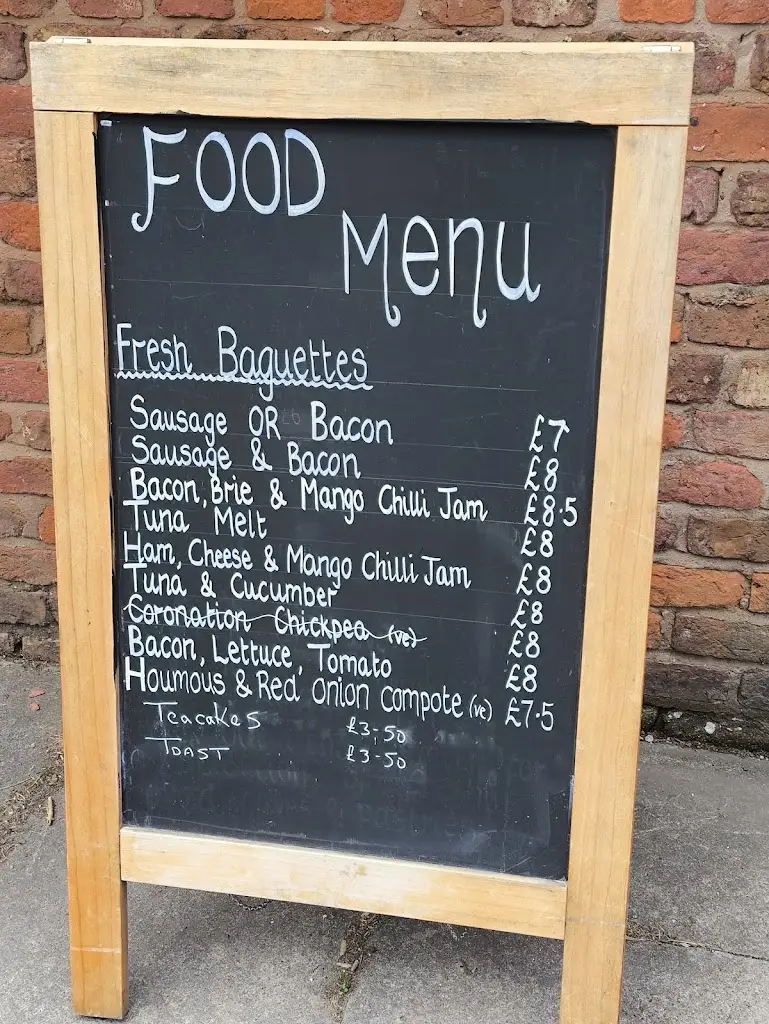 FOOD
Menu
Fresh Baguettes
Sausage OR Bacon £7
Sausage & Bacon £8
Bacon, Brie & Mango Chilli Jam £8.5
Tuna Melt £8
Ham, Cheese & Mango Chilli Jam £8
Tuna & Cucumber £8
Coronation Chickpea (ve) £8
Bacon, Lettuce, Tomato £8
Houmous & Red onion compote (ve) £7.5
Teacakes £3-50
TOAST £3-50